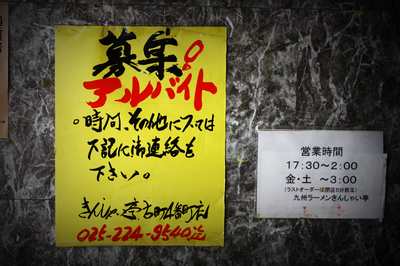 募集。
アルバイト
。時間、その他については
下記に御連絡を
下さい。
きんしゃい亭古町4番町店
025-224-9540迄
営業時間
17:30～2:00
金・土 ～3:00
(ラストオーダーは閉店5分前迄)
九州ラーメンきんしゃい亭